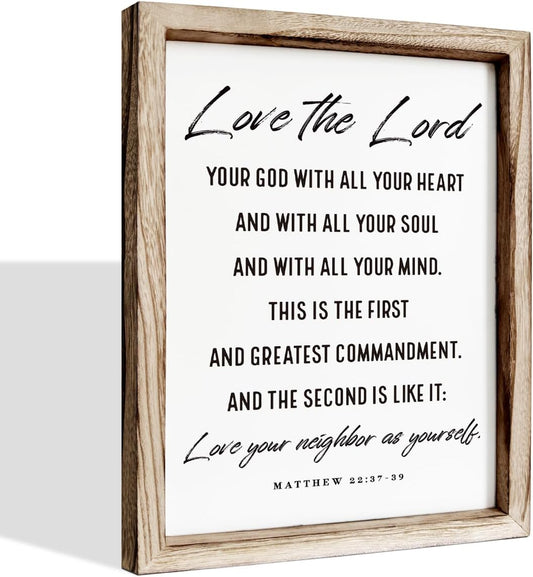 Love the Lord
YOUR GOD WITH ALL YOUR HEART
AND WITH ALL YOUR SOUL
AND WITH ALL YOUR MIND.
THIS IS THE FIRST
AND GREATEST COMMANDMENT.
AND THE SECOND IS LIKE IT:
Love your neighbor as yourself.
MATTHEW 22:37-39